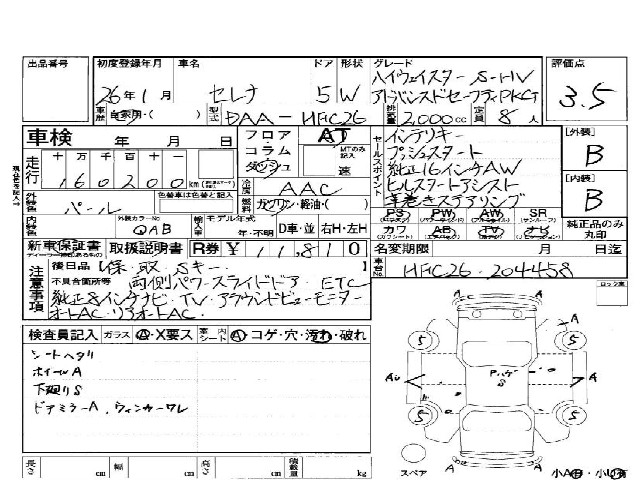 出品番号
初度登録年月 車名 ドア 形状 グレード 評価点
26年1月 セレナ 5 W
ハイウェイスター S-HV
アドバンスドセーフティPKG
3.5
車歴 自家用・( ) 型式 DAA-HFC26 排気量 2,000cc 定員 8人
車検 年 月 日
フロア・コラム・ダッシュ
AT
MTのみ記入 速
セールスポイント
インテリキー
プッシュスタート
純正16インチAW
ヒルスタートアシスト
革巻きステアリング
[外装]
B
[内装]
B
走行 十万千百十
160200km
冷房 AAC
外装色 パール
色替車は色替と記入
燃料 ガソリン・軽油・( )
PS PW AW SR
カワ AB TV ナビ
純正品のみ丸印
内装色 外装カラーNo QAB
輸入車 モデル年式 年・不明 D車・並 右H・左H
新車保証書 取扱説明書 R券 ¥11,810
名変期限 月 日迄
車台No HFC26-204458
注意事項
後日品[保、取、Sキー ]
不具合箇所等 両側パワースライドドア ETC
純正8インチナビ TV アラウンドビューモニター
オートAC リアオートAC
ロック無
検査員記入 ガラス A・X要ス 車内 シート A・コゲ・穴・汚れ・破れ
シートヘタリ
ホイールA
下廻りS
ドアミラーA、ウィンカーワレ
A
A
5
5
A
A
5
5
A
スペア
長さ cm 幅 cm 高さ cm 積載量 kg
小A有・小U有